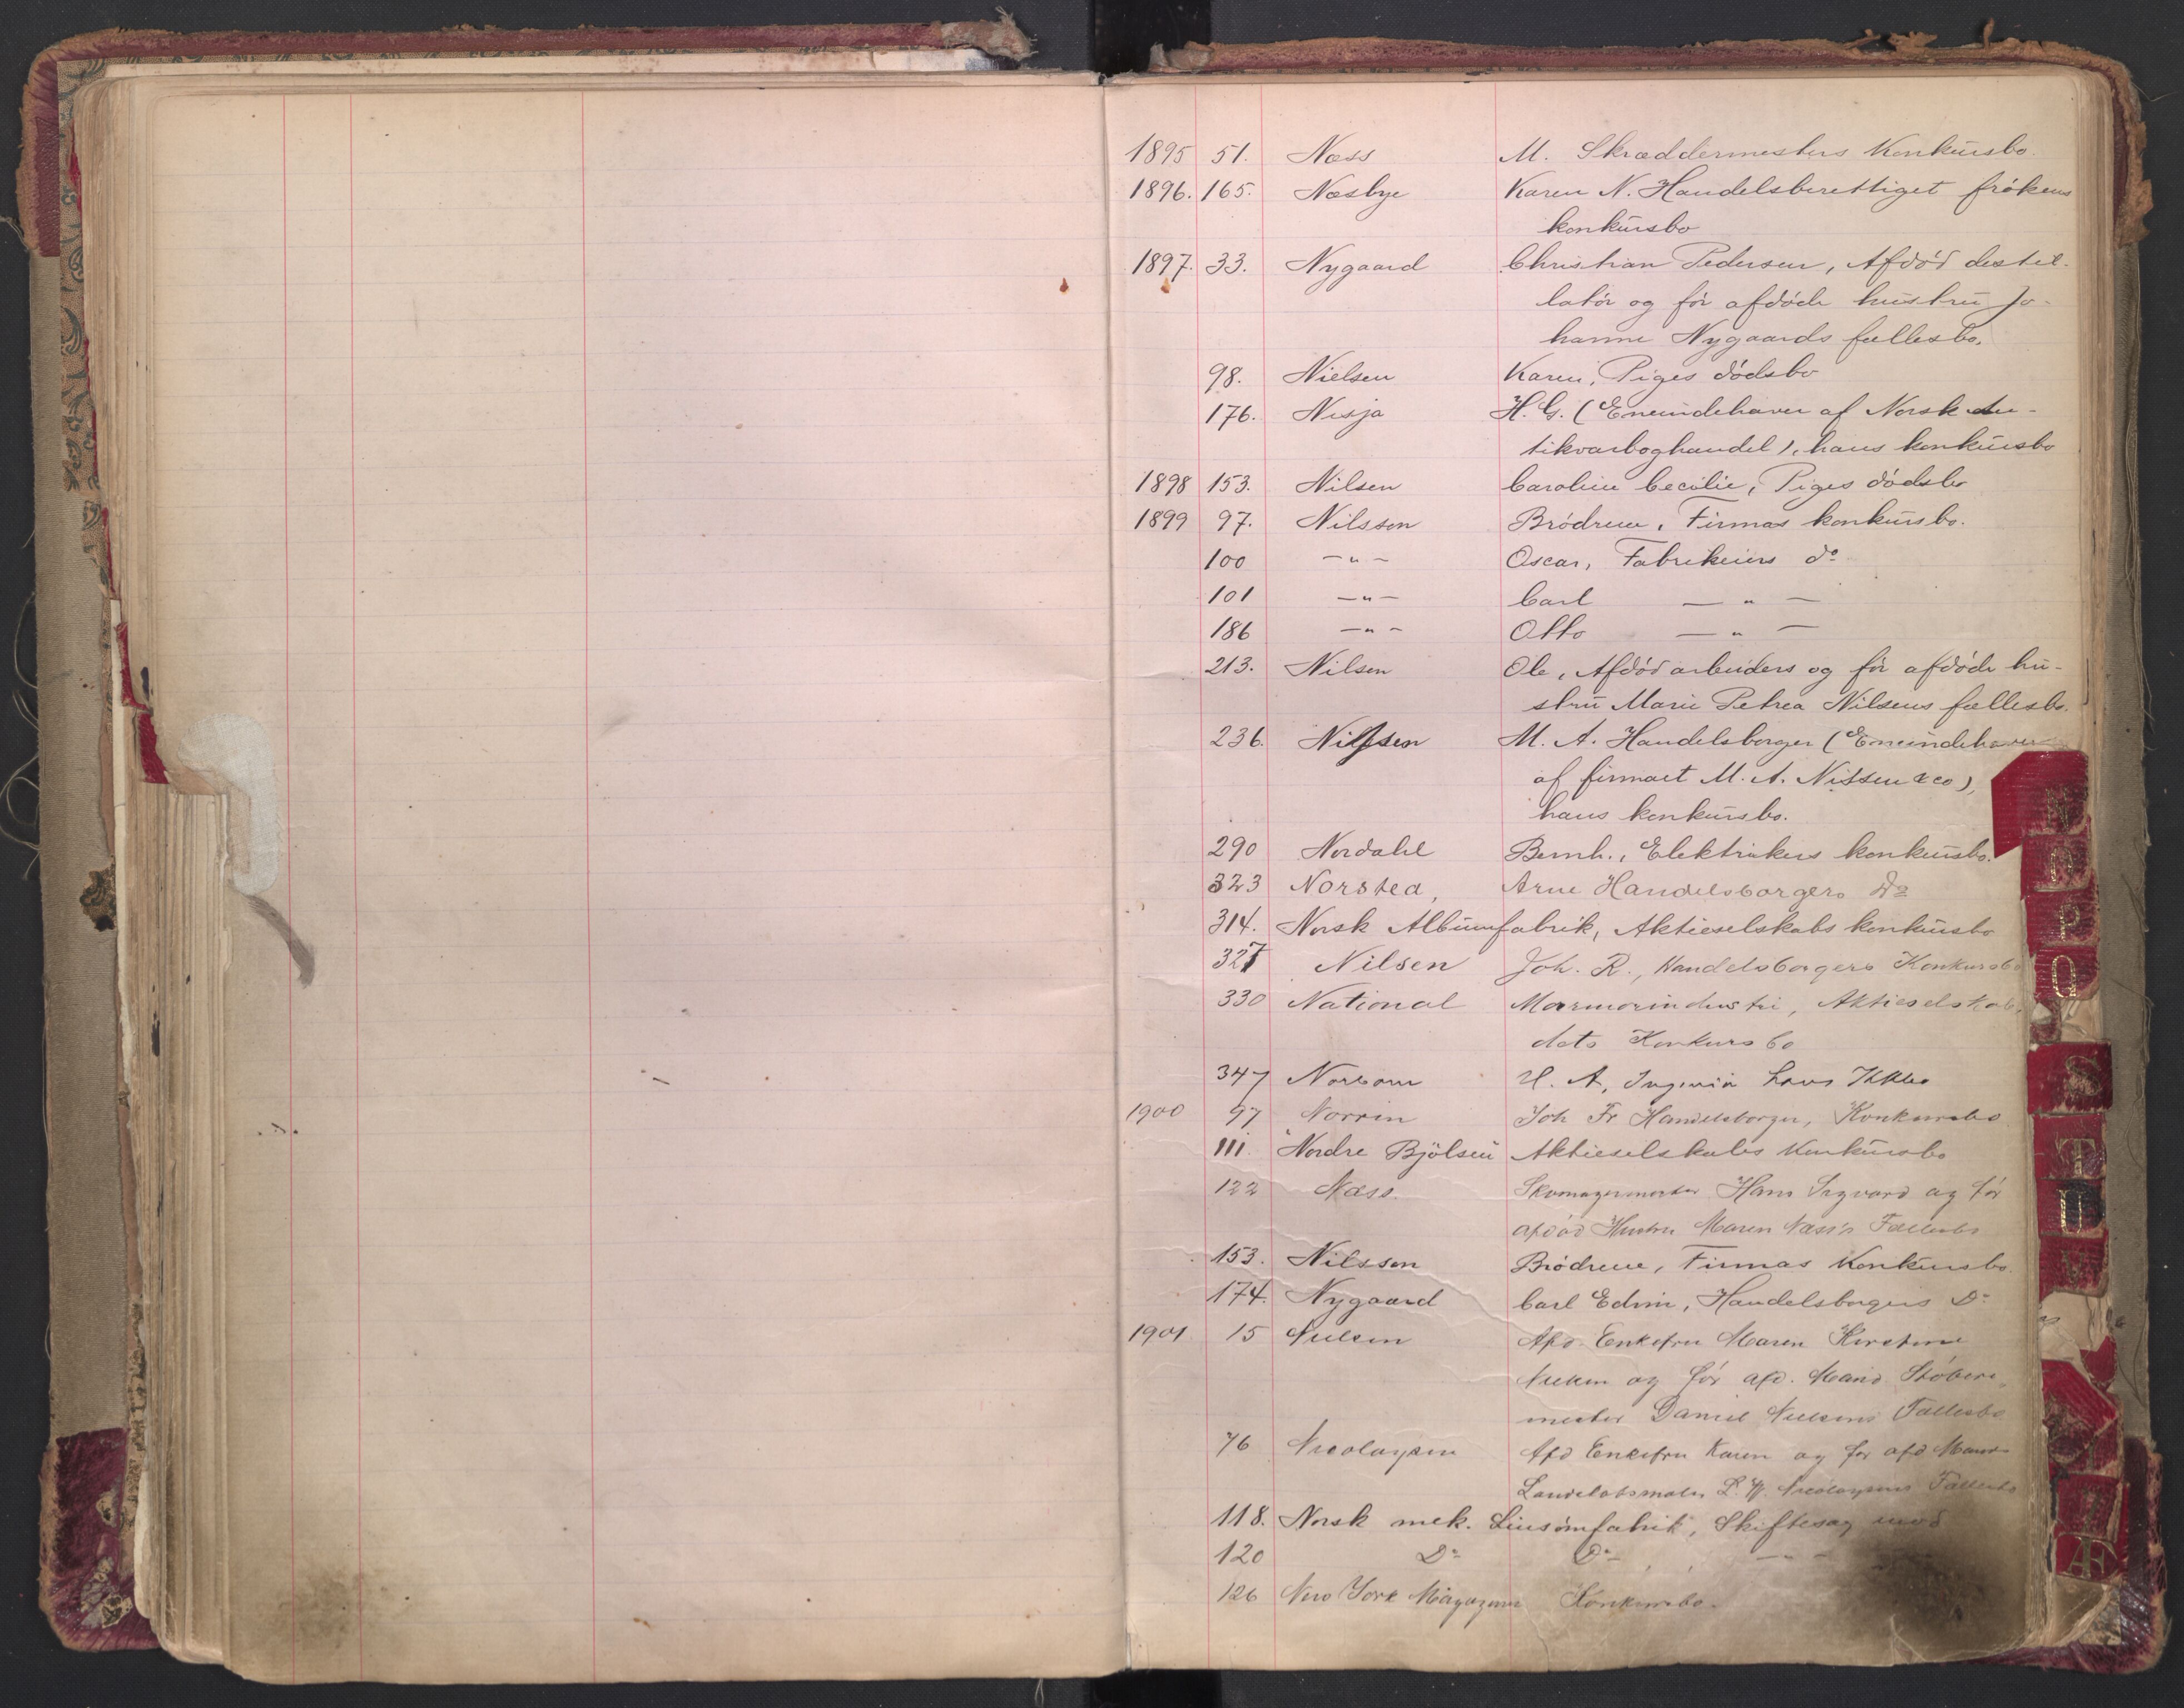 1895 51. Næss M. Skræddermesters Konkursbo.
1896. 165. Næsbye Karen N. Handelsberettiget frökens
konkursbo
1897. 33. Nygaard Christian Pedersen, Afdöd destil-
latör og för afdöde hustru Jo-
hanne Nygaards fællesbo.
98. Nielsen Karen, Piges dödsbo
176. Nisja H. G. (Eneindehaver af Norsk An-
tikvarboghandel), hans konkursbo
1898 153. Nilsen Caroline Cecilie, Piges dödsbo
1899 97. Nilsson Brödrene, Firmas konkursbo.
100 - " - Oscar, Fabrikeiers do
101 - " - Carl - " -
186 - " - Otto - " -
213. Nilsen Ole, Afdöd arbeiders og för afdöde hu-
stru Marie Petrea Nilsens fællesbo.
236. Nissen M. A. Handelsborger (Eneindehaver
af firmaet M. A. Nissen & co),
hans konkursbo.
290 Nordahl Bernh., Elektrikers konkursbo.
323 Norstea, Arne Handelsborgers Do
314. Norsk Albumfabrik, Aktieselskabs konkursbo
327 Nilsen Joh. R., Handelsborgers Konkursbo
330 National Marmorindustri, Aktieselskab,
dets Konkursbo
347 Norbom A, Ingeniör hans
1900 97 Norrin Joh Fr Handelsborger, Konkursbo
111. Nordre Bjölsen Aktieselskabs Konkursbo
122 Næss Skomagermester Hans Sigvard og för
afdöd Hustru Maren Næss's Fællesbo
153. Nilsson Brödrene, Firmas Konkursbo.
174. Nygaard Carl Edvin, Handelsborgers Do
1901 15 Nielsen Afd. Enkefru Maren Kirstine
Nielsen og för afd. Mand Stöberi-
mester Daniel Nielsens Fællesbo
76 Nicolaysen Afd Enkefru Karen og för afd Mand
Landskabsmaler Nicolaysens Fællesbo
118. Norsk mek. Linsömfabrik, Skiftesag mod
120 Do Do - " -
126 New York Magazinets Konkursbo.
N
P
Q
S
T
U
V
Æ